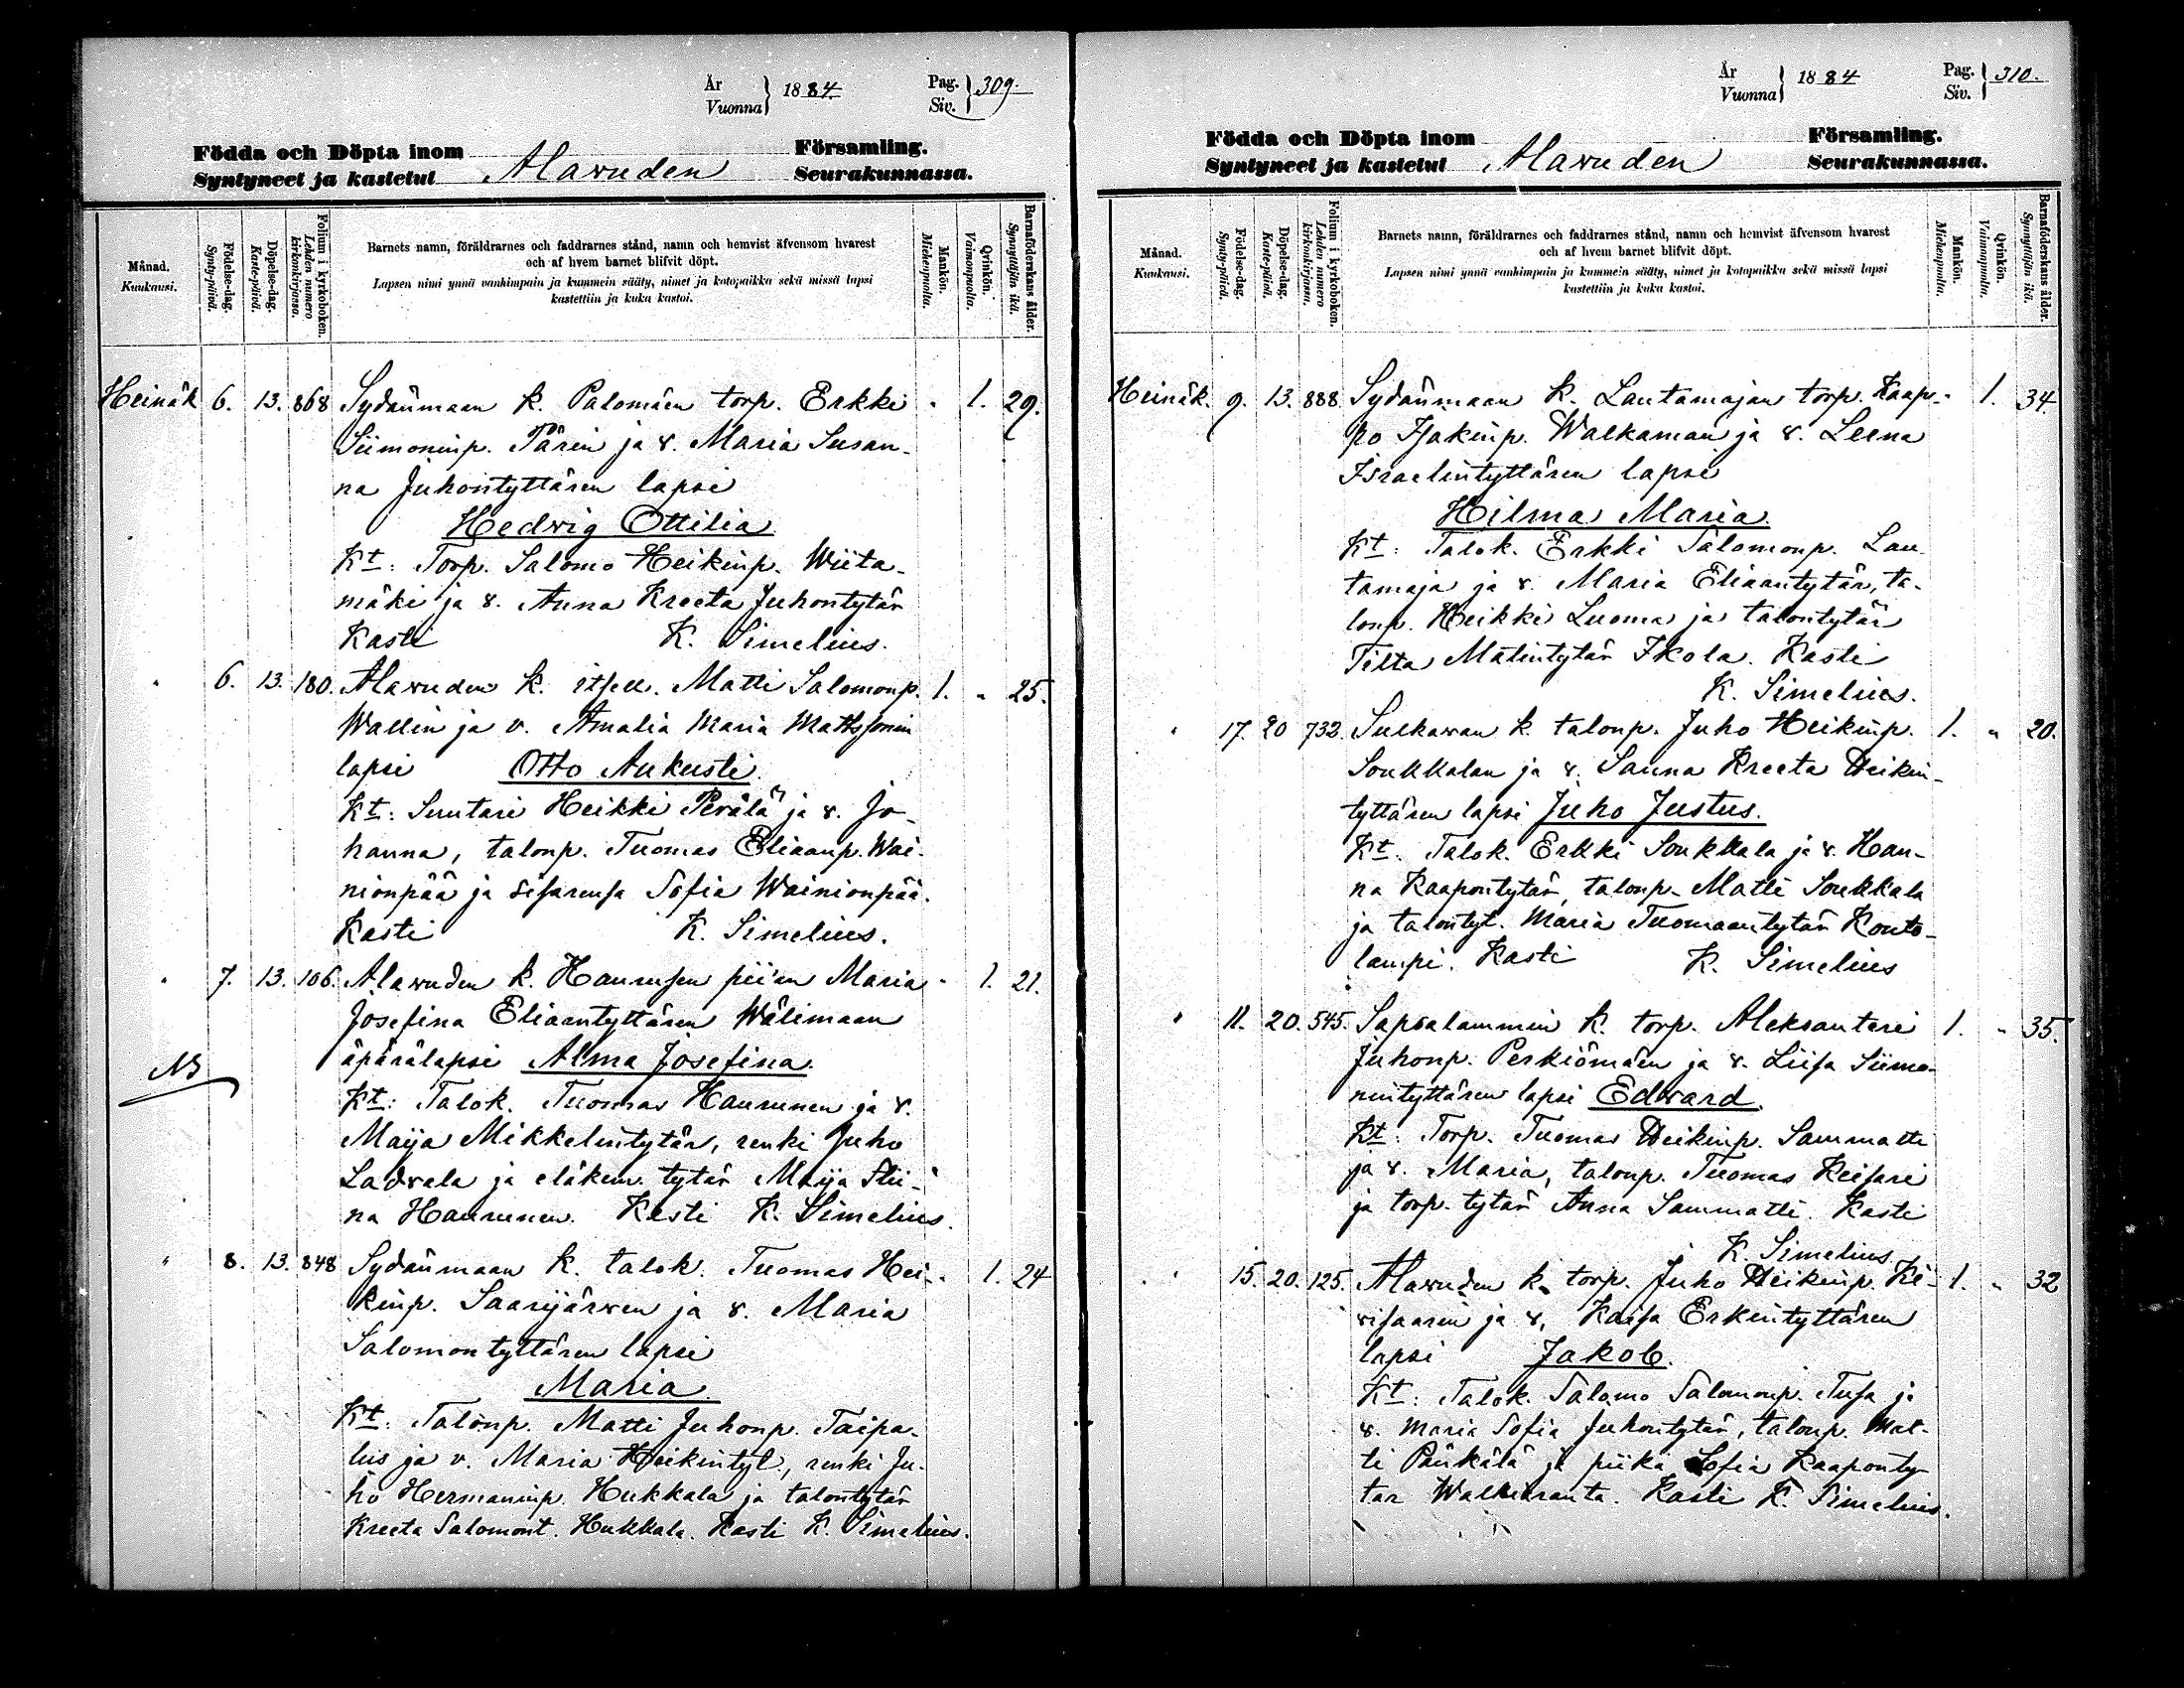 År
Vuonna } 1884
Pag.
Siv. } 309.
Födda och Döpta inom Församling.
Syntyneet ja kastetut Alawuden Seurakunnassa.
Månad.
Kuukausi.
Födelse-dag.
Synty-päivä.
Döpelse-dag.
Kaste-päivä.
Folium i kyrkoboken.
Lehden numero
kirkonkirjassa.
Barnets namn, föräldrarnes och faddrarnes stånd, namn och hemvist äfvensom hvarest
och af hvem barnet blifvit döpt.
Lapsen nimi ynnä vanhimpain ja kummein sääty, nimet ja kotopaikka sekä missä lapsi
kastettiin ja kuka kastoi.
Mankön.
Miehenpuolta.
Qvinkön.
Vaimonpuolta.
Barnaföderskans ålder.
Synnyttäjän ikä.
Heinäk 6. 13. 868 Sydänmaan k. Palomäen torp. Erkki " 1. 29.
Siimoninp. Pärin ja v. Maria Susan-
na Juhontyttären lapsi
Hedwig Ottilia
Kt: Torp. Salomo Heikinp. Wiita-
mäki ja v. Anna Kreeta Juhontytär
Kasti K. Simelius.
" 6. 13. 180. Alawuden k. itsell. Matti Salomonp. 1. " 25.
Wallin ja v. Amalia Maria Mattssonin
lapsi Otto Aukusti.
Kt: Suutari Heikki Perälä ja v. Jo-
hanna, talonp. Tuomas Eliaanp. Wai-
nionpää ja sisarensa Sofia Wainionpää.
Kasti K. Simelius.
" 7. 13. 106. Alawuden k. Haurusen piian Maria " 1. 21.
Josefina Eliaantyttären Wälimaan
äpärälapsi Alma Josefina.
NB
Kt: Talok. Tuomas Haurunen ja v.
Maija Mikkelintytär, renki Juho
Ladvala ja eläkem. tytär Maija Stii-
na Haurunen. Kasti K. Simelius.
" 8. 13. 848 Sydänmaan k. talok. Tuomas Hei- " 1. 24
kinp. Saarijärwen ja v. Maria
Salomontyttären lapsi
Maria.
Kt: Talonp. Matti Juhonp. Taipa-
lus ja v. Maria Heikintyt., renki Ju-
ho Hermaninp. Hukkala ja talontytär
Kreeta Salomont. Hukkala. Kasti K. Simelius.
År
Vuonna } 1884
Pag.
Siv. } 310.
Födda och Döpta inom Församling.
Syntyneet ja kastetut Alawuden Seurakunnassa.
Månad.
Kuukausi.
Födelse-dag.
Synty-päivä.
Döpelse-dag.
Kaste-päivä.
Folium i kyrkoboken.
Lehden numero
kirkonkirjassa.
Barnets namn, föräldrarnes och faddrarnes stånd, namn och hemvist äfvensom hvarest
och af hvem barnet blifvit döpt.
Lapsen nimi ynnä vanhimpain ja kummein sääty, nimet ja kotopaikka sekä missä lapsi
kastettiin ja kuka kastoi.
Mankön.
Miehenpuolta.
Qvinkön.
Vaimonpuolta.
Barnaföderskans ålder.
Synnyttäjän ikä.
Heinäk. 9. 13. 888. Sydänmaan k. Lautamajan torp. Kaap- " 1. 34.
po Isakinp. Walkaman ja v. Leena
Israelintyttären lapsi
Hilma Maria.
Kt: Talok. Erkki Salomonp. Lau-
tamaja ja v. Maria Eliaantytär, ta-
lonp. Heikki Luoma ja talontytär
Tilta Matintytär Ikola. Kasti
K. Simelius.
" 17. 20 732. Sulkawan k. talonp. Juho Heikinp. 1. " 20.
Soukkalan ja v. Sanna Kreeta Heikin-
tyttären lapsi Juho Justus.
Kt. Talok. Erkki Soukkala ja v. Han-
na Kaapontytär, talonp. Matti Soukkala
ja talontyt. Maria Tuomaantytär Konto-
lampi. Kasti K. Simelius
" 11. 20. 545. Sapsalammin k. torp. Aleksanteri 1. " 35.
Juhonp. Perkiömäen ja v. Liisa Siimo-
nintyttären lapsi Edward.
Kt: Torp. Tuomas Heikinp. Sammatti
ja v. Maria, talonp. Tuomas Keisari
ja torp. tytär Anna Sammatti. Kasti
K. Simelius
" 15. 20. 125. Alawuden k. torp. Juho Heikinp. Ki- 1. " 32
wisaarin ja v. Kaisa Erkintyttären
lapsi Jakob.
Kt: Talok. Salomo Salomonp. Tusa ja
v. Maria Sofia Juhontytär, talonp. Mat-
ti Pänkälä ja piika Sofia Kaaponty-
tär Walkiranta. Kasti K. Simelius.